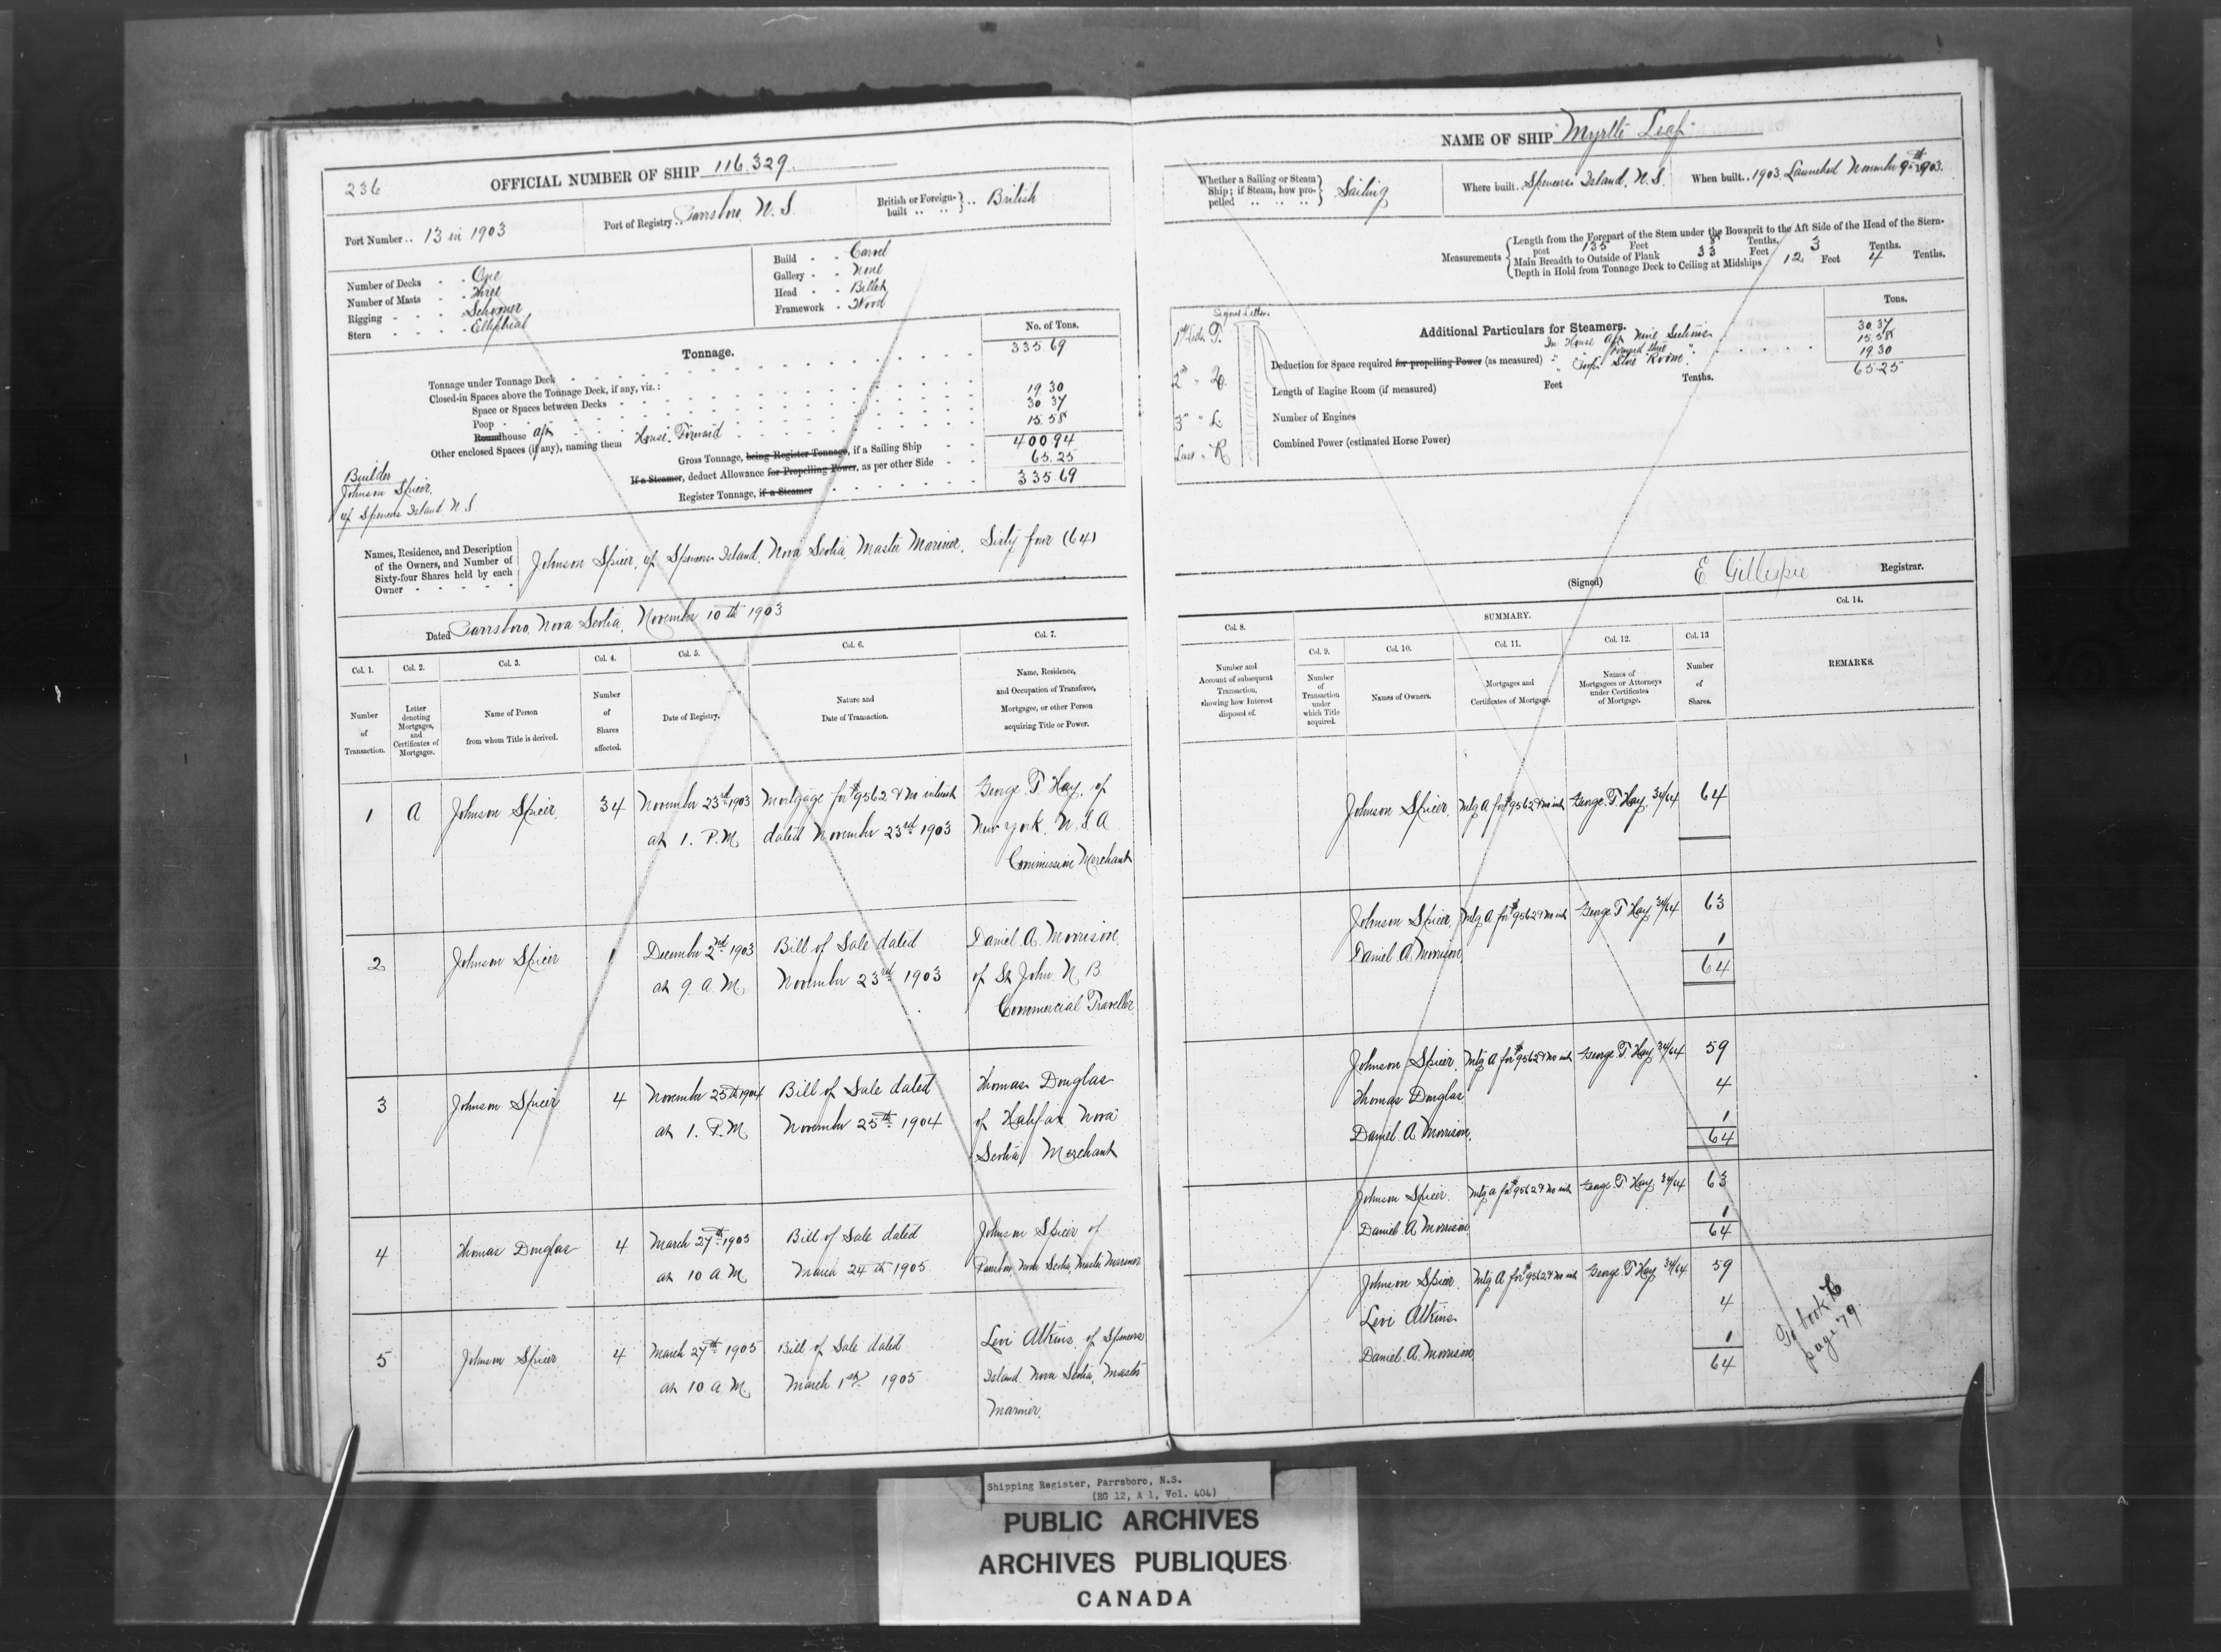 236
OFFICIAL NUMBER OF SHIP 116,329.
Port Number .. 13 in 1903
Port of Registry .. Parrsboro, N. S.
British or Foreign-built .. .. } .. British
Number of Decks - - One
Number of Masts - - Three
Rigging - - - Schooner
Stern - - - - Elliptical
Build - - Carvel
Gallery - - None
Head - - Billet
Framework - Wood
Tonnage.
No. of Tons.
Tonnage under Tonnage Deck 335.69
Closed-in Spaces above the Tonnage Deck, if any, viz. :
Space or Spaces between Decks
Poop 19.30
Roundhouse aft 30.37
Other enclosed Spaces (if any), naming them House. Forward 15.58
Gross Tonnage, being Register Tonnage, if a Sailing Ship 400.94
If a Steamer, deduct Allowance for Propelling Power, as per other Side 65.25
Register Tonnage, if a Steamer 335.69
Builder
Johnson Spicer,
of Spencers Island N.S
Names, Residence, and Description
of the Owners, and Number of
Sixty-four Shares held by each
Owner
Johnson Spicer, of Spencers Island, Nova Scotia, Master Mariner, Sixty four (64)
Dated Parrsboro, Nova Scotia, November 10th 1903
Col. 1. Col. 2. Col. 3. Col. 4. Col. 5. Col. 6. Col. 7.
Number of Transaction.
Letter denoting Mortgages, and Certificates of Mortgages.
Name of Person from whom Title is derived.
Number of Shares affected.
Date of Registry.
Nature and Date of Transaction.
Name, Residence, and Occupation of Transferee, Mortgagee, or other Person acquiring Title or Power.
1 A Johnson Spicer, 34 November 23rd 1903 Mortgage for $9562 & no interest George T. Hay, of
at 1. P.M. dated November 23rd 1903 New York, U.S.A
Commission Merchant
2 Johnson Spicer 1 December 2nd 1903 Bill of Sale dated Daniel A. Morrison
at 9. A.M. November 23rd 1903 of St John. N. B.
Commercial Traveller
3 Johnson Spicer 4 November 25th 1904 Bill of Sale dated Thomas Douglas
at 1. P.M. November 25th 1904 of Halifax Nova
Scotia, Merchant
4 Thomas Douglas 4 March 27th 1905 Bill of Sale dated Johnson Spicer of
at 10 A.M. March 24th 1905 Nova Scotia, Master Mariner
5 Johnson Spicer 4 March 27th 1905 Bill of Sale dated Levi Atkins, of Spencers
at 10. A.M. March 1st 1905 Island, Nova Scotia, Master
Mariner.
NAME OF SHIP "Myrtle Leaf"
Whether a Sailing or Steam
Ship; if Steam, how pro-
pelled .. .. .. } Sailing
Where built.. Spencers Island, N.S.
When built.. 1903. Launched November 9th 1903.
Measurements { Length from the Forepart of the Stem under the Bowsprit to the Aft Side of the Head of the Stern-
post 135 Feet 8 Tenths.
Main Breadth to Outside of Plank 33 Feet 3 Tenths.
Depth in Hold from Tonnage Deck to Ceiling at Midships 12 Feet 4 Tenths.
Signal Letters
1st Letter T.
3rd " L
Last " R
Additional Particulars for Steamers.
Tons.
In House aft Nine Sections 30.37
Deduction for Space required for propelling Power (as measured) " " Forward three " 15.58
" " Store Room " 19.30
65.25
Length of Engine Room (if measured) Feet Tenths.
Number of Engines
Combined Power (estimated Horse Power)
(Signed) E Gillespie Registrar.
SUMMARY.
Col. 8. Col. 9. Col. 10. Col. 11. Col. 12. Col. 13 Col. 14.
Number and Account of subsequent Transaction, showing how Interest disposed of.
Number of Transaction under which Title acquired.
Names of Owners.
Mortgages and Certificates of Mortgage.
Names of Mortgagees or Attorneys under Certificates of Mortgage.
Number of Shares.
REMARKS.
Johnson Spicer. Mtg A for $9562 & no int George. T. Hay, 34/64 64
Johnson Spicer, Mtg A for $9562 & no int George T Hay, 34/64 63
Daniel A Morrison, 1
64
Johnson Spicer, Mtg A for $9562 & no int George. T. Hay 34/64 59
Thomas Douglas, 4
Daniel. A. Morrison, 1
64
Johnson Spicer. Mtg A for $9562 & no int George. T Hay, 34/64 63
Daniel A Morrison, 1
64
Johnson Spicer. Mtg A for $9562 & no int George. T Hay 34/64 59
Levi Atkins 4
Daniel. A. Morrison, 1
64
To book
page 79
Shipping Register, Parrsboro, N.S.
(RG 12, A 1, Vol. 404)
PUBLIC ARCHIVES
ARCHIVES PUBLIQUES
CANADA